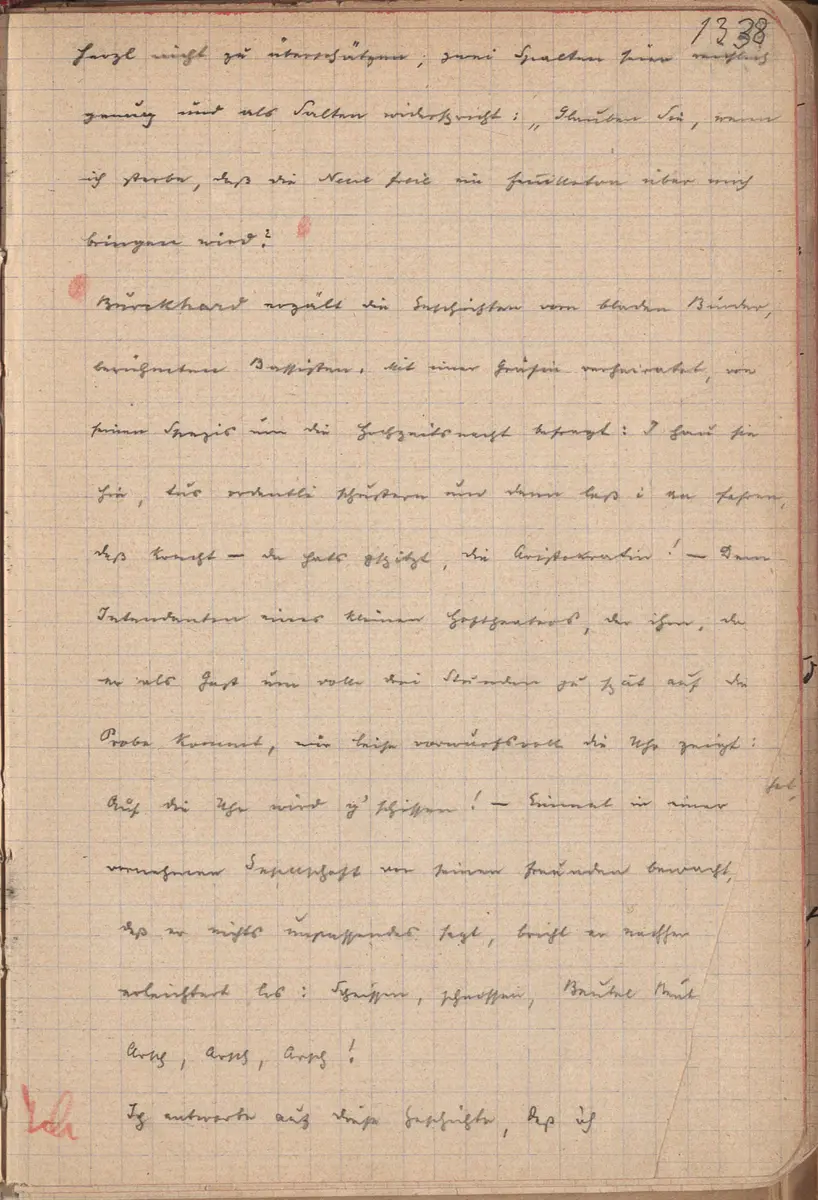 1338
Herzl nicht zu überschätzen; zwei Spalten seien reichlich
genug und als Salten widerspricht: „Glauben Sie, wenn
ich sterbe, daß die Neue freie ein Feuilleton über mich
bringen wird?
Burckhard erzält die Geschichten vom bladen
berühmten Bassisten. Mit einer Gräfin verheiratet, von
seinen Spezis um die Hochzeitsnacht befragt: I hau sie
hin, tus ordentli schustern und dann laß i an fahren,
daß kracht – da hats gspitzt, die Aristokratin! – Dem
Intendanten eines kleinen Hoftheaters, der ihm, da
er als Gast um volle drei Stunden zu spät auf die
Probe kommt, nur leise vorwurfsvoll die Uhr zeigt:
Auf die Uhr wird g'schissen! – Einmal in einer
vornehmen Gesellschaft von seinen Freunden bewacht,
daß er nichts unpassendes sagt, bricht er nachher
erleichtert los: Scheissen, Beutel
Arsch, Arsch, Arsch!
Ich antworte auf diese Geschichte, daß ich